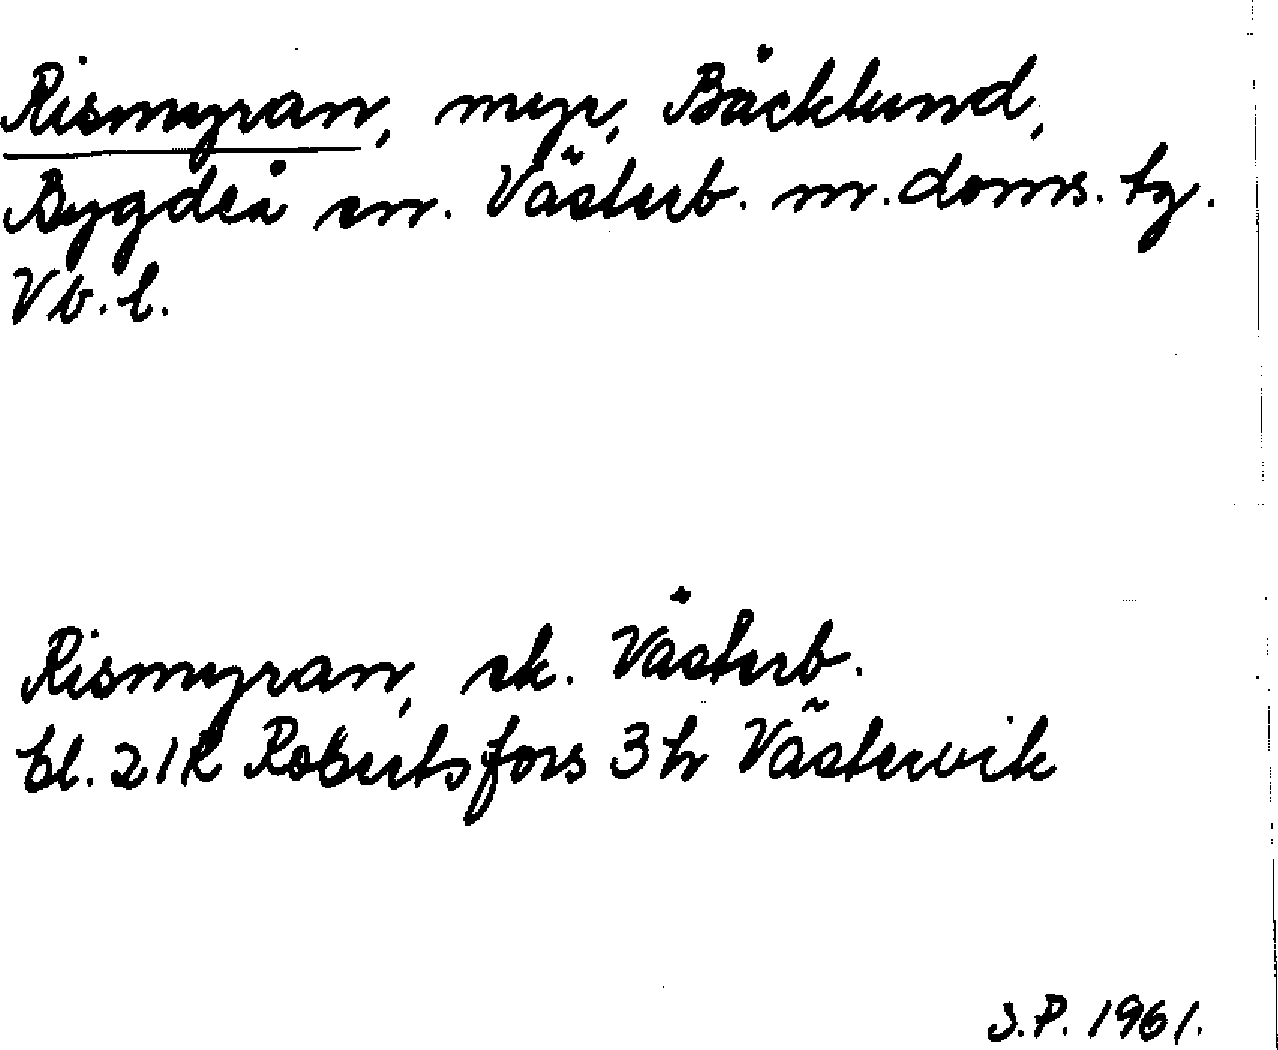 Rismyran, myr, Bäcklund,
Bygdeå sn. Västerb. m. doms. tg.
Vb. l.
Rismyran, ek. Västerb.
bl. 21K Robertsfors 3h Västervik
S.P. 1961.